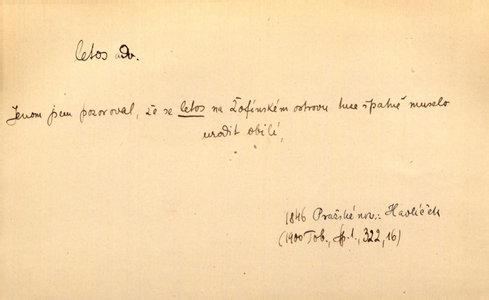 letos adv.
Jenom jsem pozoroval, že se letos na Žofínském ostrovu tuze špatně muselo
urodit obilí,
1846 Pražské nov.: Havlíček
(1900 Tob., sp. 1, 322, 16)